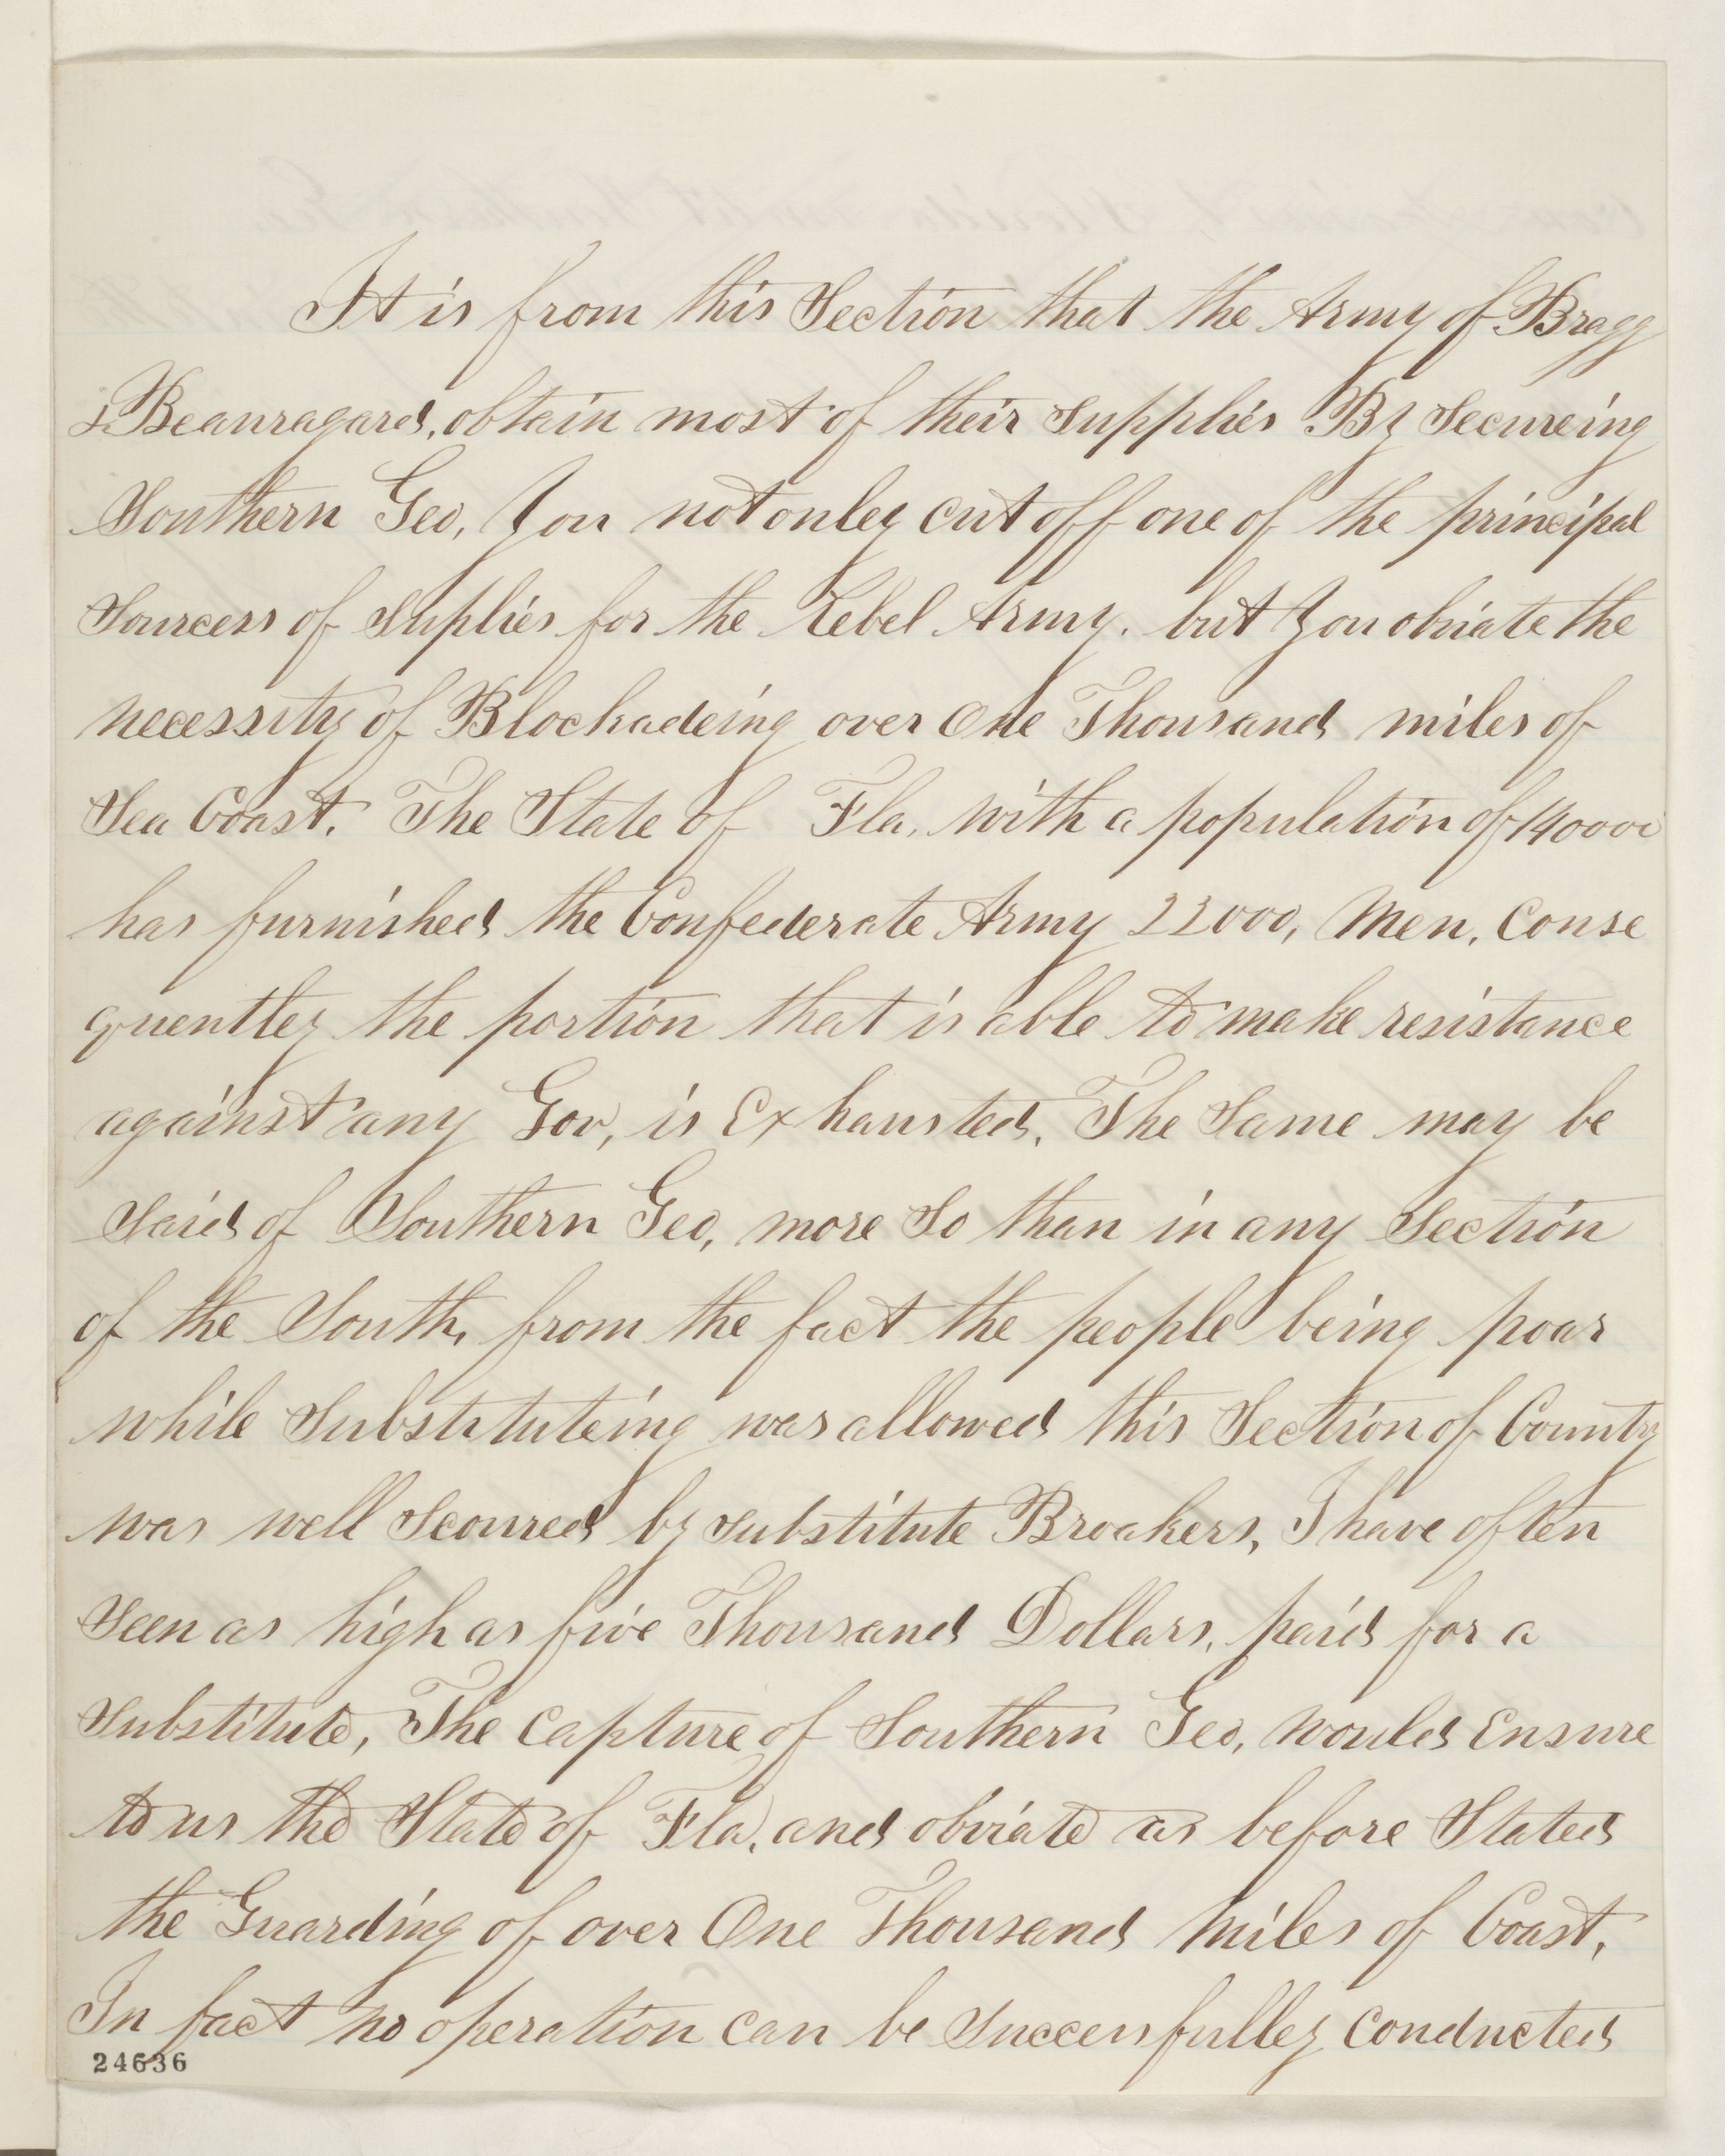 It is from this Section that the Army of Bragg
& Beauragard, obtain most of their supplies By Secureing
Southern Geo, You not onley cut off one of the principal
Sourcess of Suplies for the Rebel Army. but You obviate the
necessity of Blockadeing over One Thousand miles of
Sea Coast. The State of Fla. with a population of 140000
has furnished the Confederate Army 22000, Men, Conse
quentley the portion that is able to make resistance
against any Gov, is Exhausted. The Same may be
Said of Southern Geo, more So than in any Section
of the South, from the fact the people being poar
while Substituteing was allowed this Section of Country
was well Scoured by substitute Broakers, I have often
Seen as high as five Thousand Dollars, paid for a
Substitute, The Capture of Southern Geo, would Ensure
to us the State of Fla, and obviate as before Stated
the Guarding of over One Thousand Miles of Coast,
In fact no operation can be Successfulley Conducted
24636